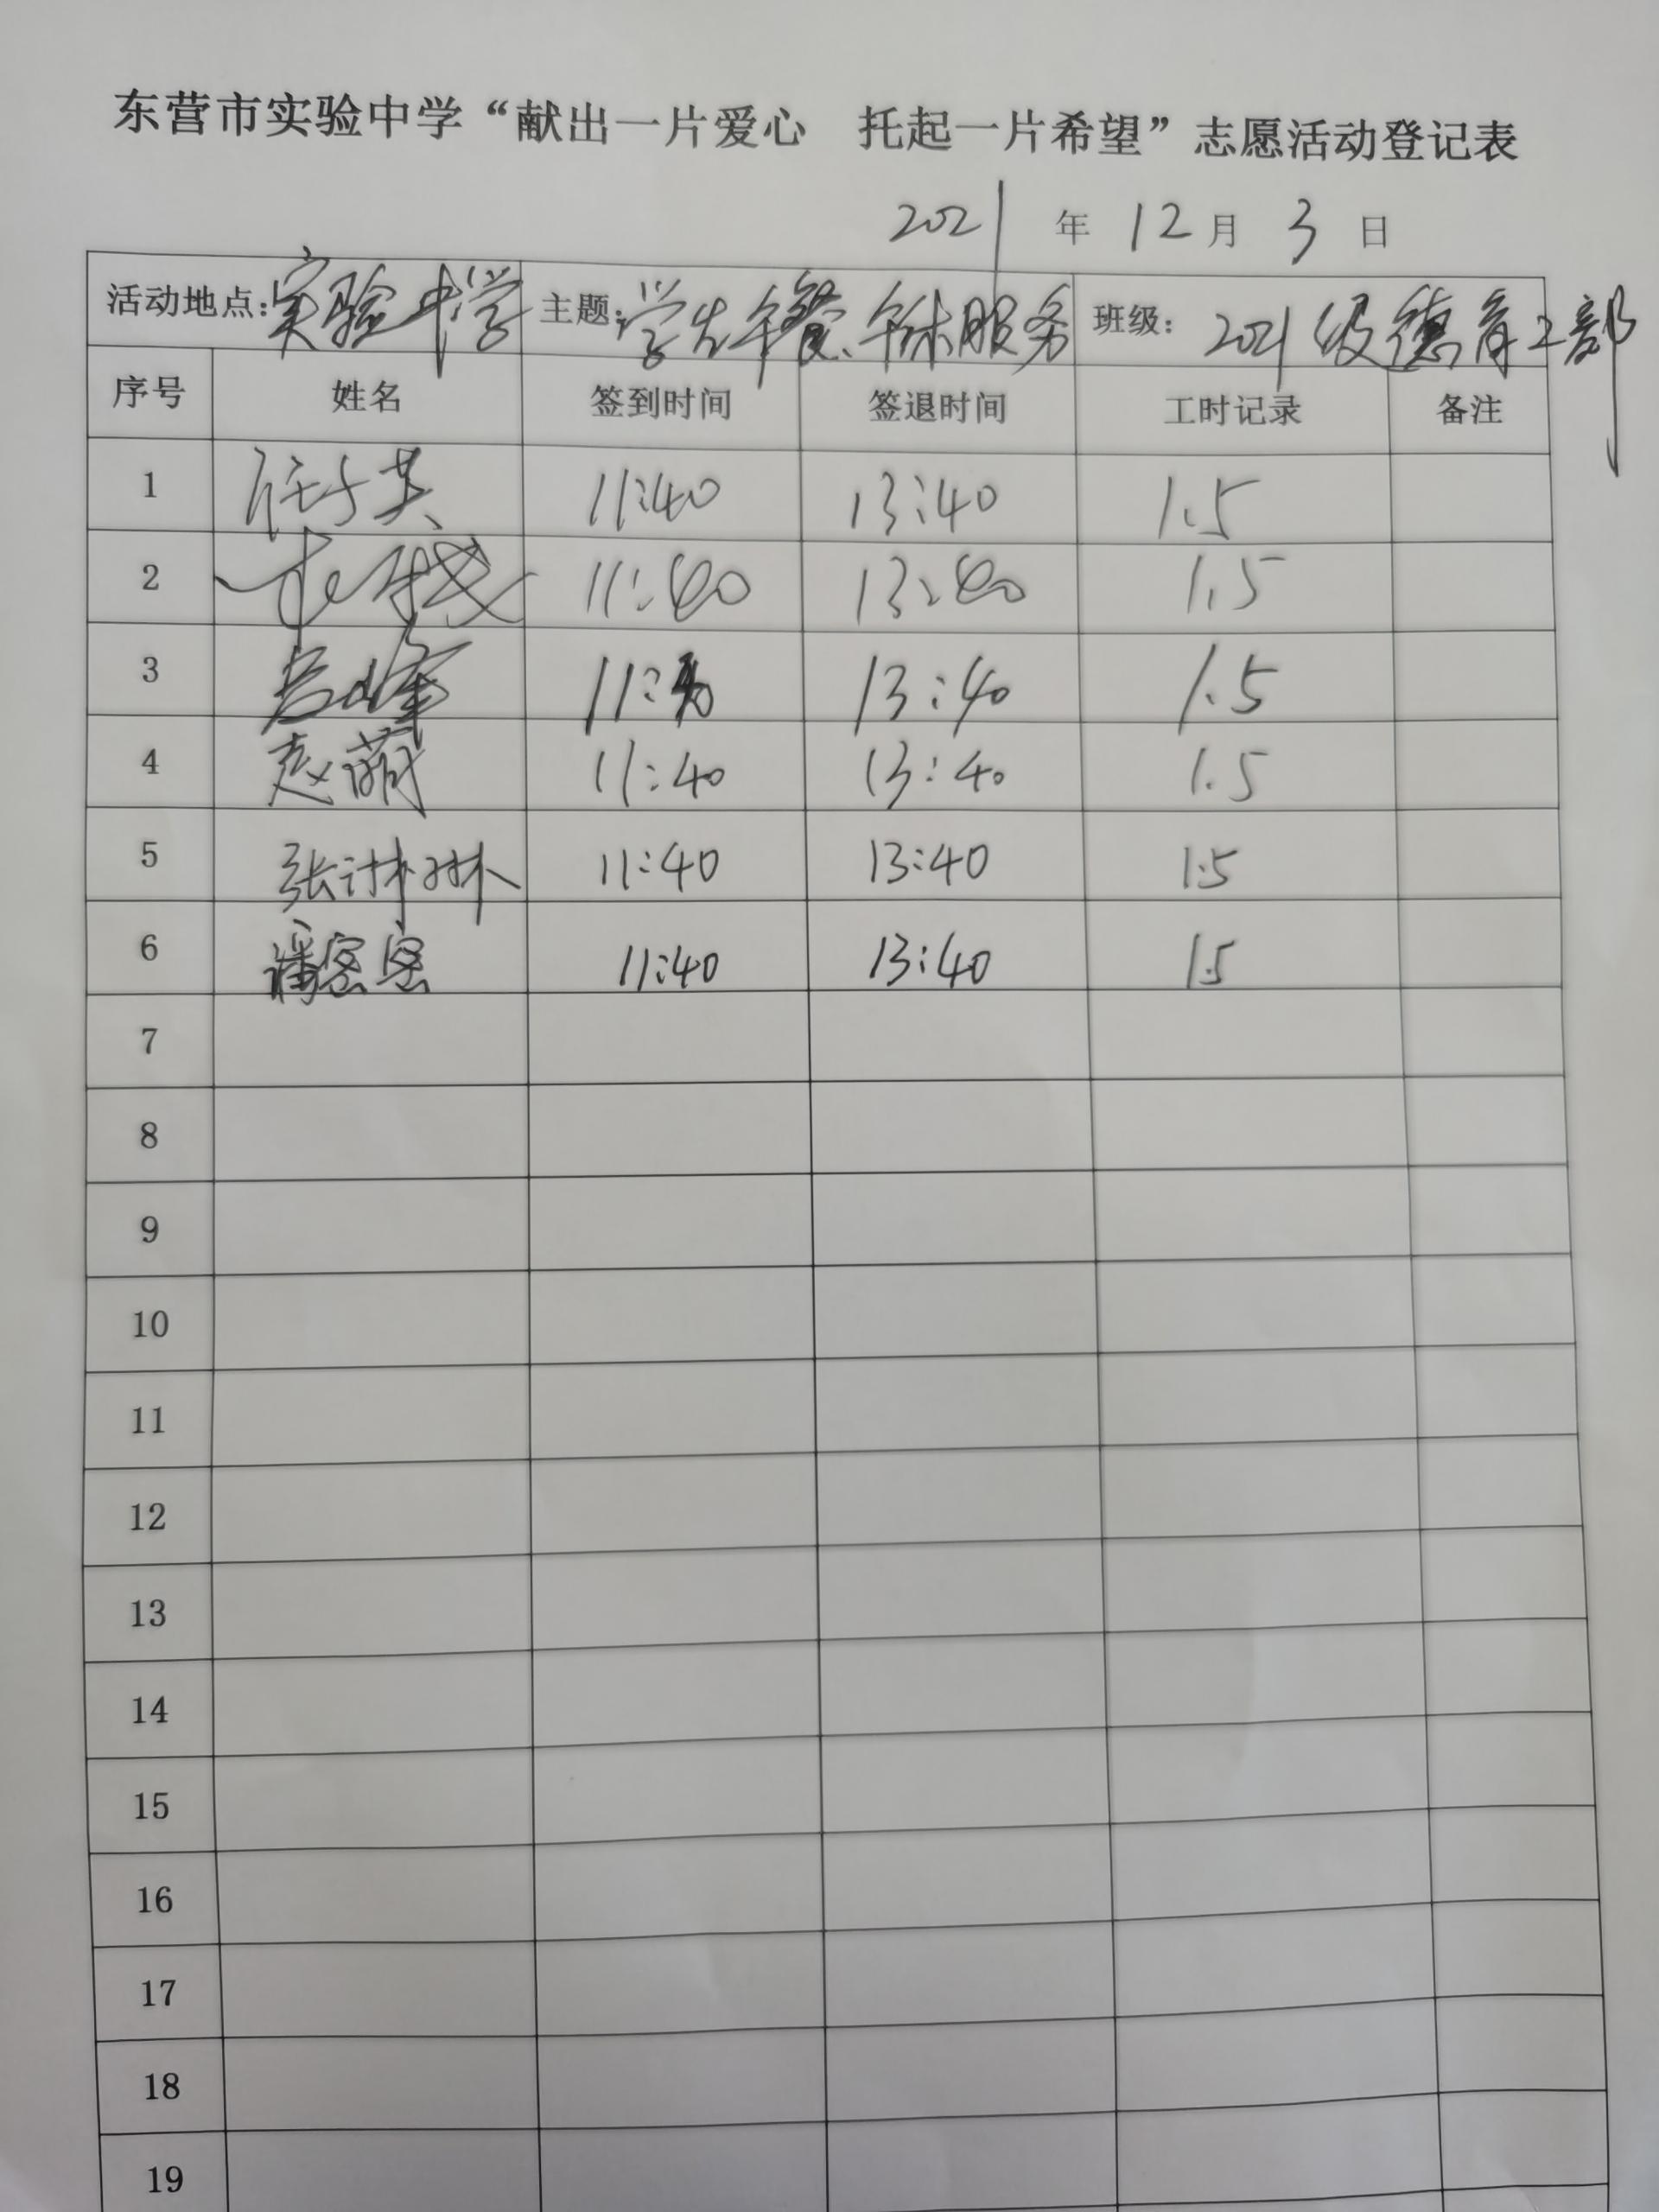 东营市实验中学“献出一片爱心　托起一片希望”志愿活动登记表
2021 年 12 月 3 日
活动地点：实验中学 主题：学生午餐、午休服务 班级：2021级德育2部
序号 姓名 签到时间 签退时间 工时记录 备注
1 任英 11:40 13:40 1.5
2 11:40 13:40 1.5
3 峰 11:40 13:40 1.5
4 赵萌 11:40 13:40 1.5
5 张琳 11:40 13:40 1.5
6 潘密密 11:40 13:40 1.5
7
8
9
10
11
12
13
14
15
16
17
18
19